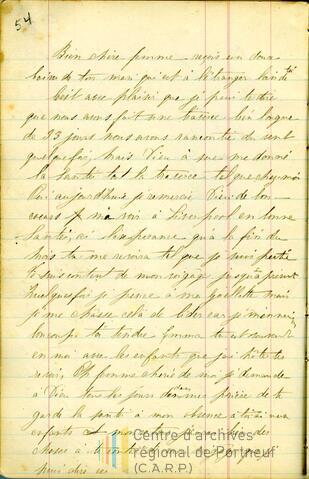 54
Bien chère femme reçois un dou
baiser de ton mari qui est à l'étranger loin de toi
C'est avec plaisir que je peux te dire
que nous avons fait une traversé bien longue
de 23 jours nous avons rencontré du vent
quelquefois, mais Dieu à me me donné
la santé tout la traverse tel que chez moi
Oui aujourd'hui je remercie Dieu de bon
coeur Je me vois à Liverpool en bonne
santé, ci l'espérance qu'à la fin du
mois tu me revoira tel que je suis partie
Je suis content de mon voyage jusqu'à présent
Quelquefois je pense à ma Goëllette mais
je me chasse celà de l'idée car je m'ennui
beaucoup ta tendre Emma tu es souvent
en moi avec les enfants que j'ai hâte de
revoir, Oh femme chérie de moi je demande
à Dieu tous les jours dans mes prière de te
garde la santé à mon absence à toi à nos
enfants
choses à te conter
Centre d'archives
régional de Portneuf
(C.A.R.P.)